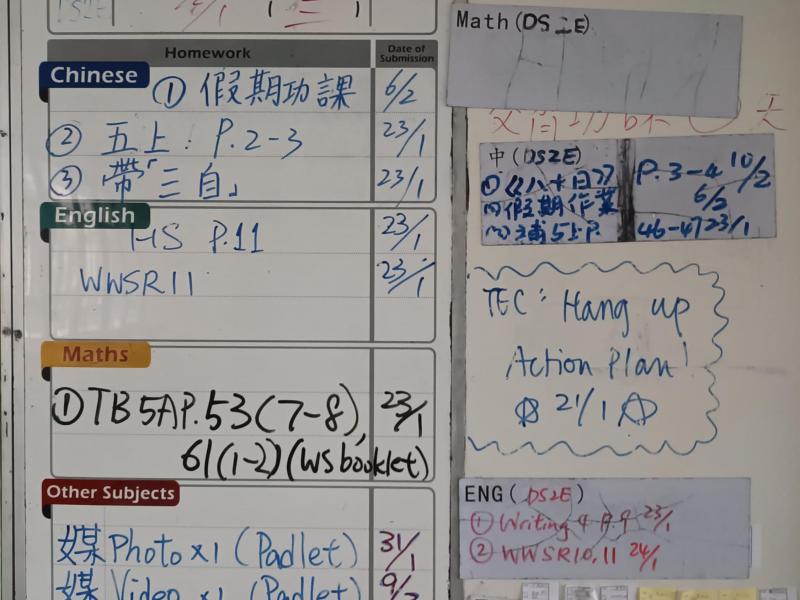 Homework
Date of Submission
Chinese
① 假期功課 6/2
② 五上：P.2-3 23/1
③ 帶「三自」 23/1
English
HS P.11 23/1
WWSR11 23/1
Maths
① TB 5A P.53(7-8), 23/1
61(1-2)(WS booklet)
Other Subjects
媒 Photo x1 (Padlet) 31/1
媒 Video x1 (Padlet)
Math(DS2E)
天
中(DS2E)
①《八十日》 P.3-4 10/2
假期作業 6/2
補5上P. 46-47 23/1
TEC: Hang up
Action Plan!
21/1
ENG(DS2E)
① Writing 4 P.9 23/1
② WWSR10,11 24/1